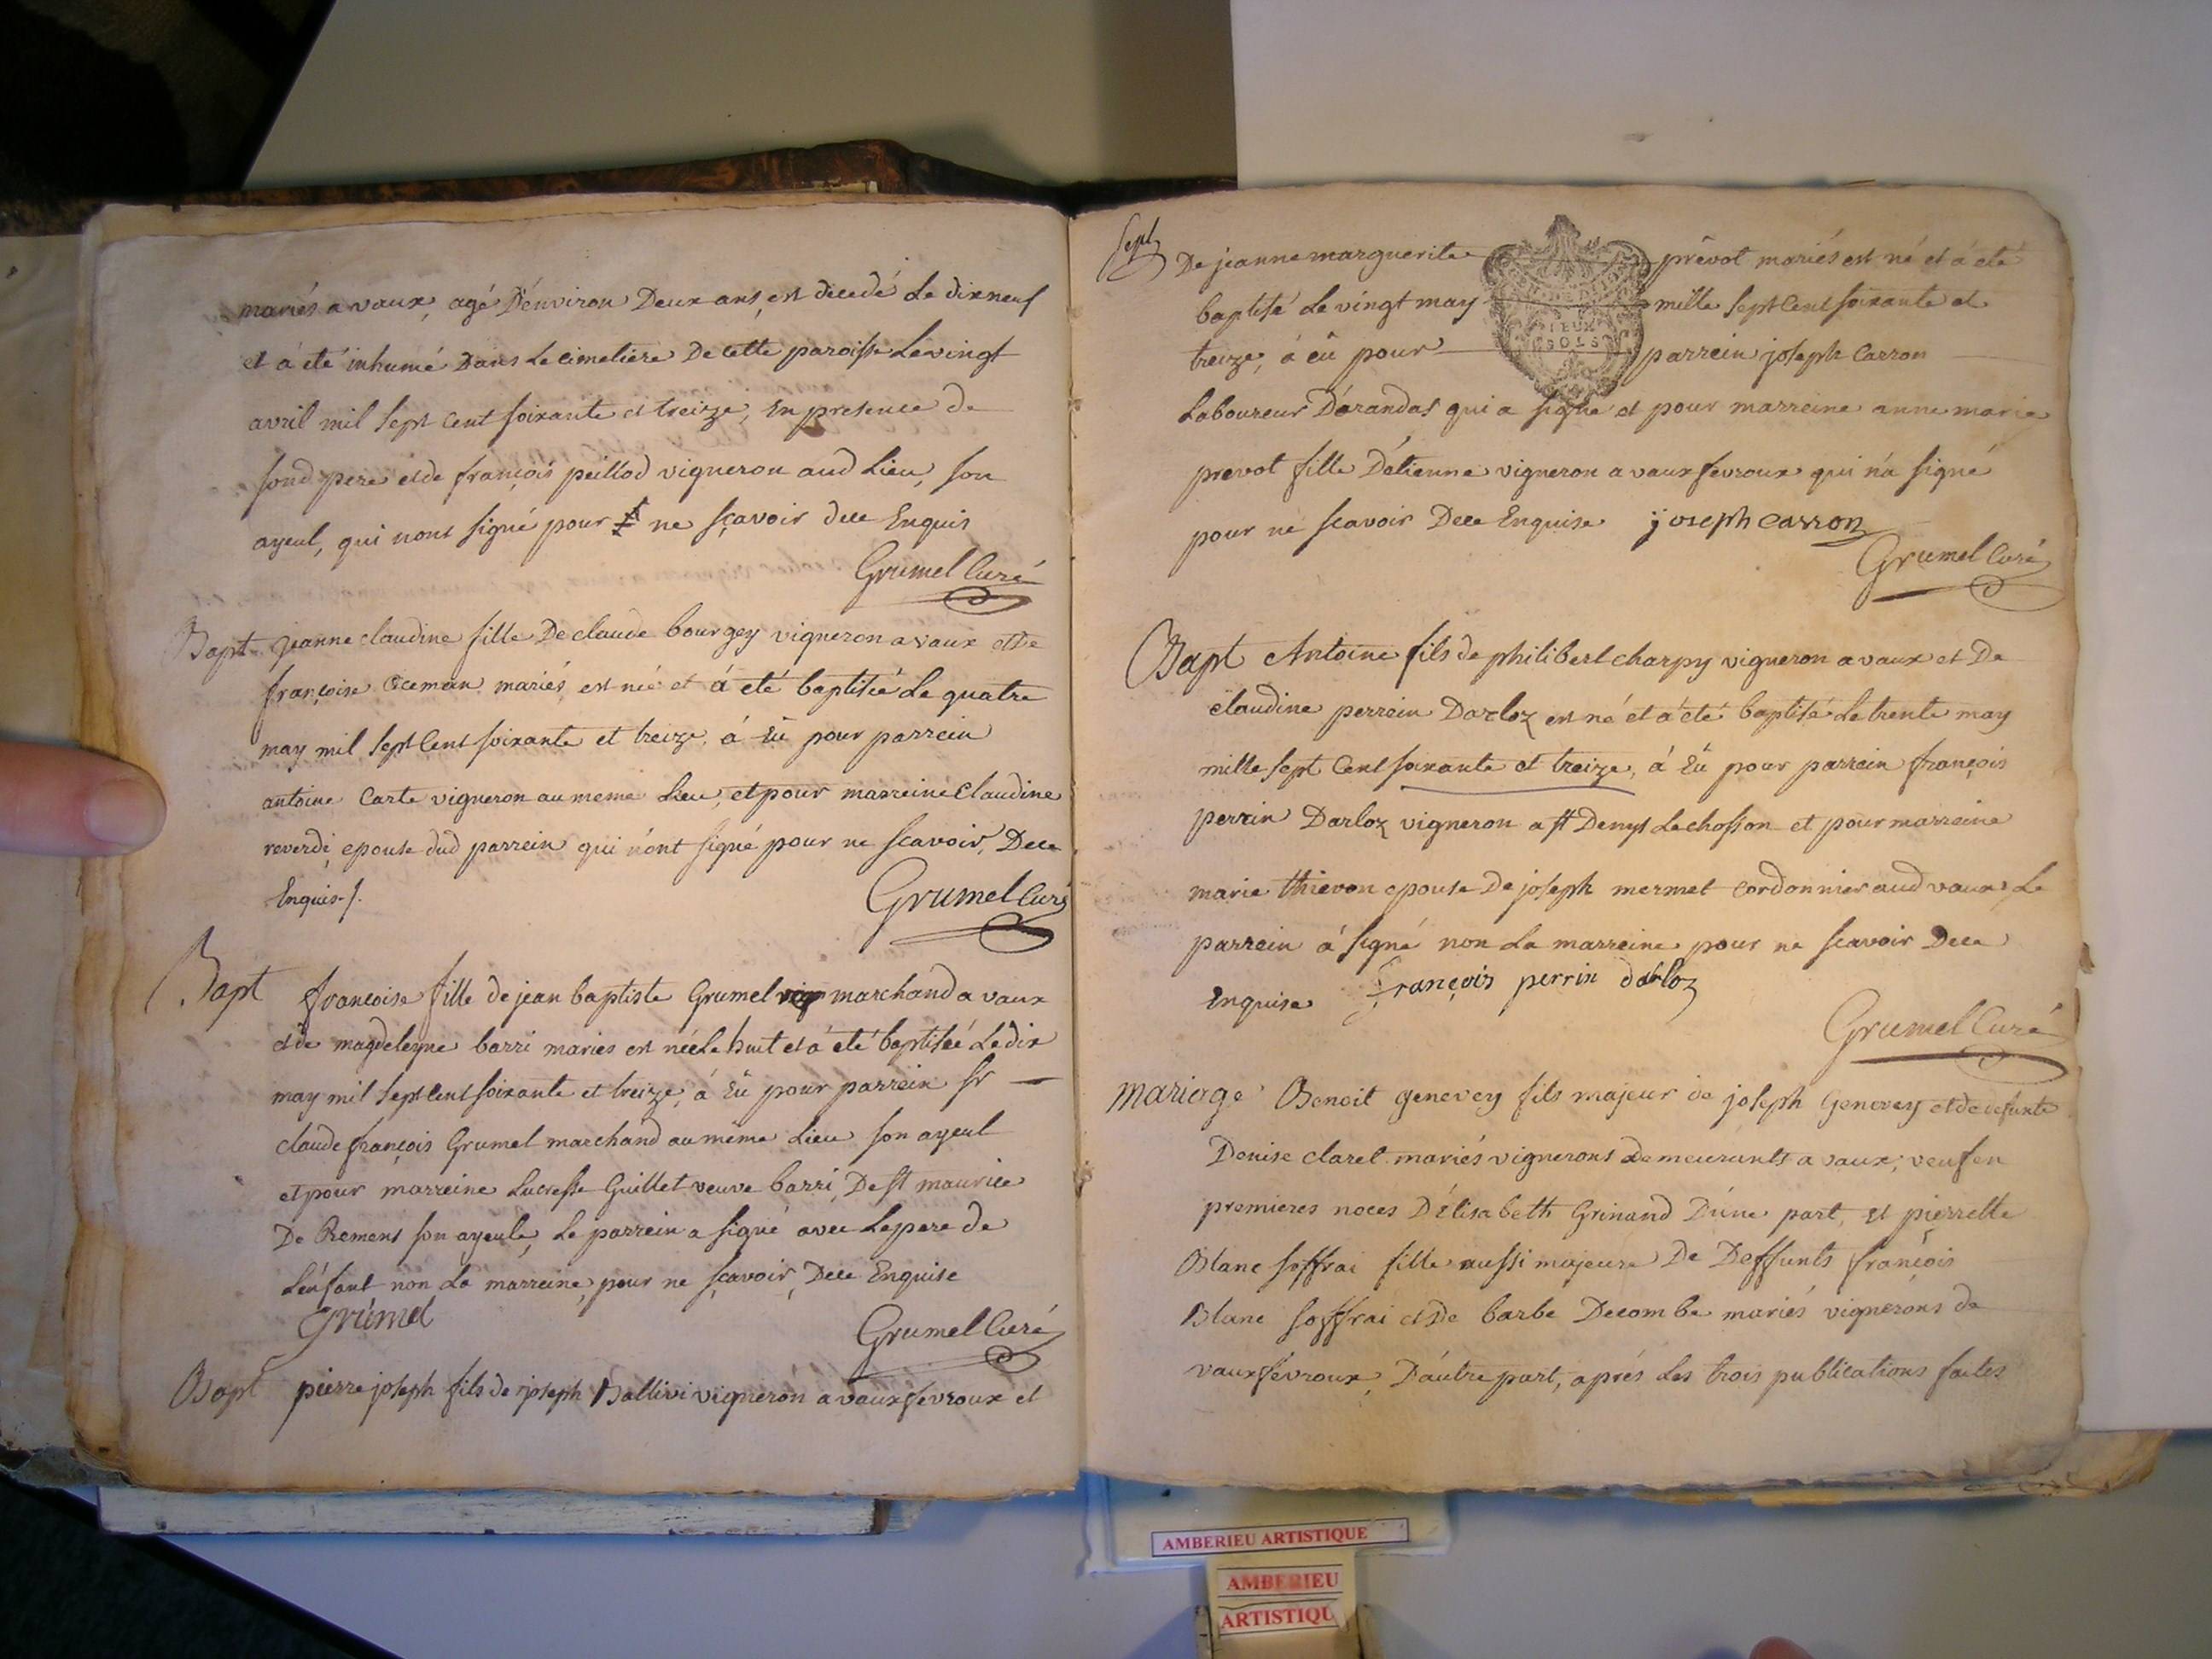 mariés a vaux, agé D'environ Deux ans, est decedé Le dixneuf
et á eté inhumé Dans Le cimetiere De cette paroisse Le vingt
avril mil sept cent soixante et treize, En presence de
sond pere et de françois peillod vigneron aud Lieu, son
ayeul, qui nont signé pour ne sçavoir dece Enquis
Grumel Curé
Bapt jeanne claudine fille De claude bourgey vigneron a vaux et De
françoise mariés, est née et á eté baptiséé Le quatre
may mil sept Cent soixante et treize, á Eû pour parrein
antoine Carte vigneron au meme Lieu, et pour marreine Claudine
reverdi, epouse dud parrein qui n'ont signé pour ne scavoir, Dece
Enquis
Grumel Curé
Bapt francoise fille de jean baptiste Grumel marchand a vaux
et de magdeleyne barri mariés est néé Le huit et á eté baptiséé Le dix
may mil sept Cent soixante et treize, á Eû pour parrein sr
claude françois Grumel marchand au meme Lieu son ayeul
et pour marreine Lucresse Guillet veuve barri, De st maurice
De Remens son ayeule, Le parrein a signé avec Le pere de
L'enfant non La marreine, pour ne sçavoir, Dece Enquise
Grumel
Grumel Curé
Bapt pierre joseph fils de joseph Ballivi vigneron a vaux fevroux et
Sept
De jeanne marguerite prévot mariés est né et á eté
baptisé Le vingt may mille sept Cent soixante et
treize, á eû pour parrein joseph Carron
DEUX
SOLS
Laboureur D'arandas qui a signé et pour marreine anne marie
prevot fille D'etienne vigneron a vaux fevroux qui n'a signé
pour ne scavoir Dece Enquise joseph carron
Grumel Curé
Bapt Antoine fils de philibert charpy vigneron a vaux et De
claudine perrein Darloz est né et á eté baptisé Le trente may
mille sept Cent soixante et treize, á Eû pour parrein françois
perrin Darloz vigneron a st Denys Le chosson et pour marreine
marie thievon epouse De joseph mermet cordonnier aud vaux Le
parrein á signé non La marreine pour ne scavoir Dece
Enquise françois perrin darloz
Grumel Curé
mariage Benoit genevey fils majeur de joseph Genevey et de defunte
Denise claret mariés vignerons demeurants a vaux, veuf en
premieres noces D'élisabeth Grinand D'une part, Et pierrette
Blanc soffrai fille aussi majeure De Deffunts françois
Blanc soffrai et De barbe Decombe mariés vignerons de
vaux févroux, D'autre part, aprés Les trois publications faites
AMBERIEU ARTISTIQUE
AMBERIEU
ARTISTIQU